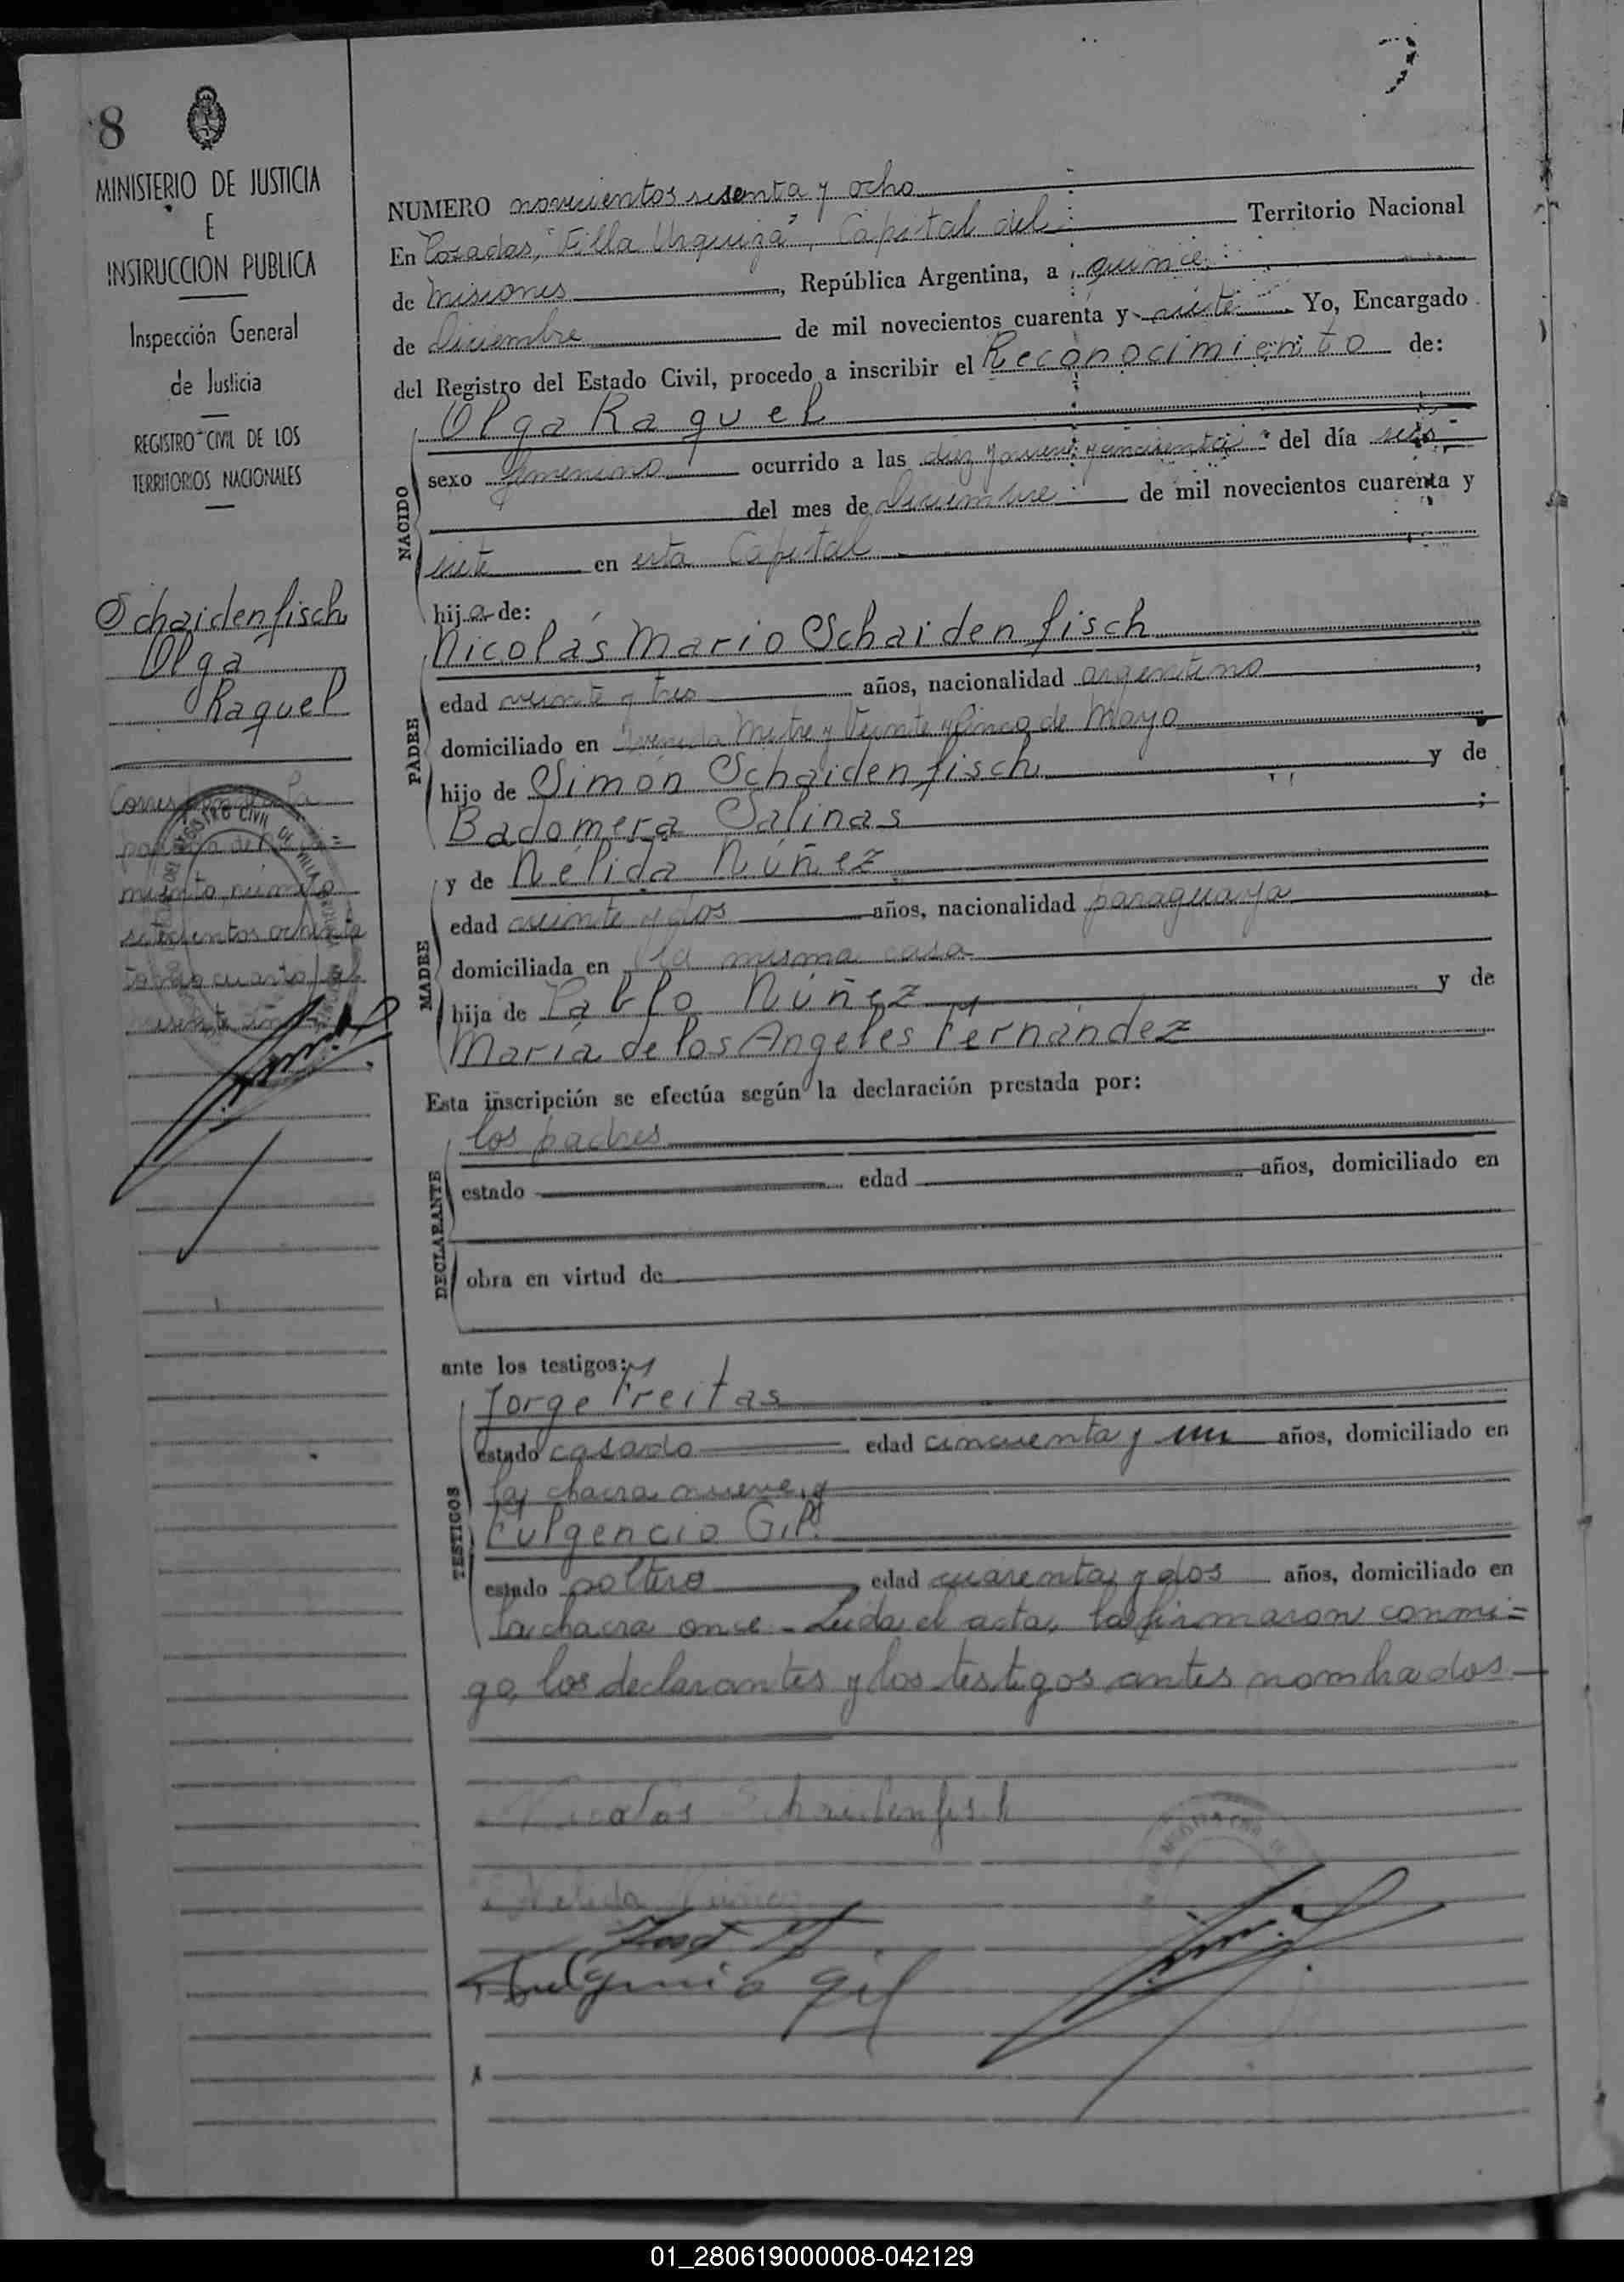 8
MINISTERIO DE JUSTICIA
E
INSTRUCCION PUBLICA
Inspección General
de Justicia
REGISTRO CIVIL DE LOS
TERRITORIOS NACIONALES
Schaidenfisch
Olga
Raquel
miento número
setecientos ochenta
NUMERO novecientos sesenta y ocho
En Posadas, "Villa Urquiza", Capital del Territorio Nacional
de Misiones, República Argentina, a quince
de Diciembre de mil novecientos cuarenta y siete Yo, Encargado
del Registro del Estado Civil, procedo a inscribir el Reconocimiento de:
NACIDO
Olga Raquel
sexo femenino ocurrido a las diez y nueve y cincuenta del día seis
del mes de Diciembre de mil novecientos cuarenta y
siete en esta Capital
hija de:
PADRE
Nicolás Mario Schaidenfisch
edad veinte y tres años, nacionalidad argentino,
domiciliado en Avenida Mitre y Veinte y Cinco de Mayo
hijo de Simón Schaidenfisch y de
Badomera Salinas;
MADRE
y de Nélida Núñez
edad veinte y dos años, nacionalidad paraguaya,
domiciliada en la misma casa
hija de Pablo Núñez y de
María de los Angeles Fernández
Esta inscripción se efectúa según la declaración prestada por:
DECLARANTE
los padres
estado edad años, domiciliado en
obra en virtud de
ante los testigos:
TESTIGOS
Jorge Freitas
estado casado edad cincuenta y un años, domiciliado en
la chacra nueve, y
Fulgencio Gil
estado soltero, edad cuarenta y dos años, domiciliado en
la chacra once.- Leída el acta, la firmaron conmi=
go, los declarantes y los testigos antes nombrados.
Nicolas Schaidenfisch
Nelida Nuñez
Fulgencio Gil
01_280619000008-042129